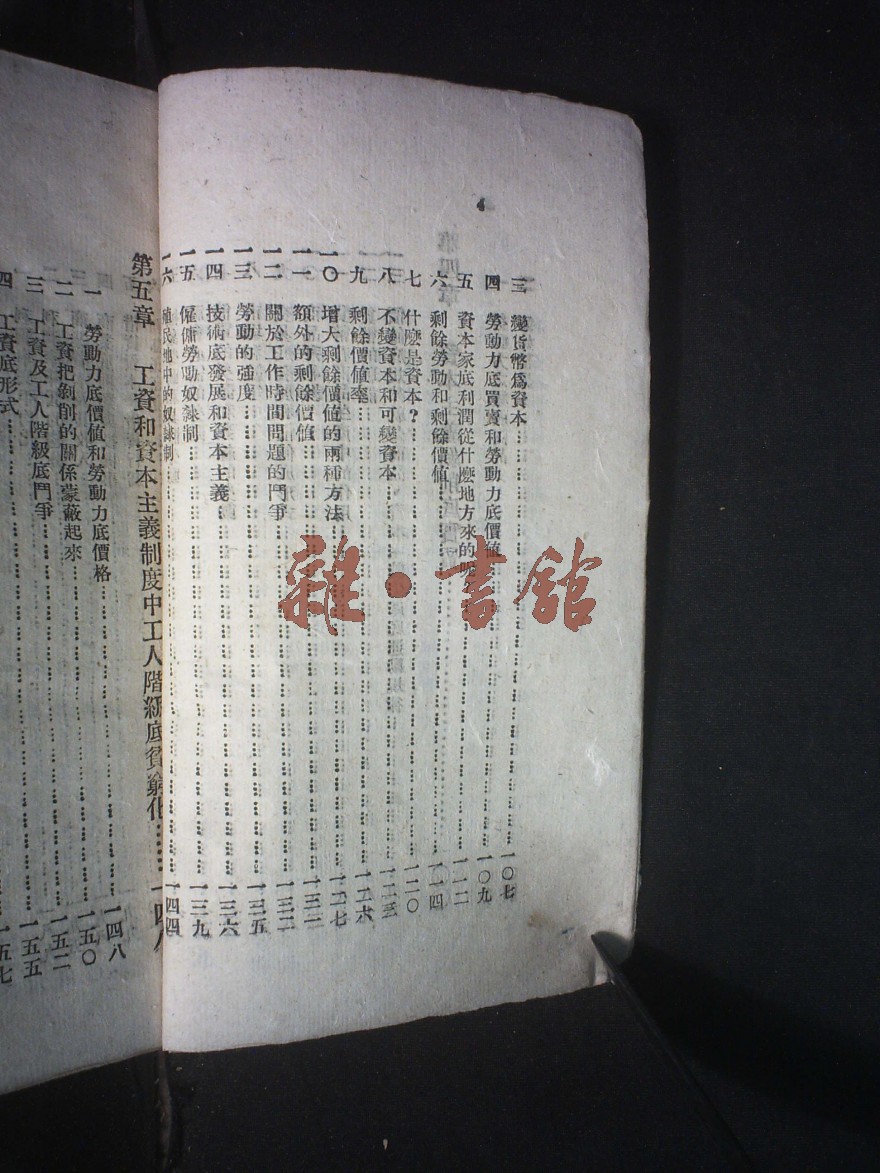 三 變貨幣爲資本……一〇七
四 勞動力底買賣和勞動力底價值……一〇九
五 資本家底利潤從什麽地方來的呢……一一二
六 剩餘勞動和剩餘價值……一一四
七 什麽是資本？……一二〇
八 不變資本和可變資本……一二三
九 剩餘價値率……一二六
一〇 增大剩餘價值的兩種方法……一二七
一一 額外的剩餘價值……一三二
一二 關於工作時間問題的鬥爭……一三二
一三 勞動的強度……一三五
一四 技術底發展和資本主義……一三六
一五 僱傭勞動奴隸制……一三九
一六 殖民地中的奴隸制……一四四
第五章 工資和資本主義制度中工人階級底貧窮化……一四八
一 勞動力底價值和勞動力底價格……一四八
二 工資把剝削的關係蒙蔽起來……一五〇
三 工資及工人階級底鬥爭……一五二
四 工資底形式……一五五
一五七
雜·書館